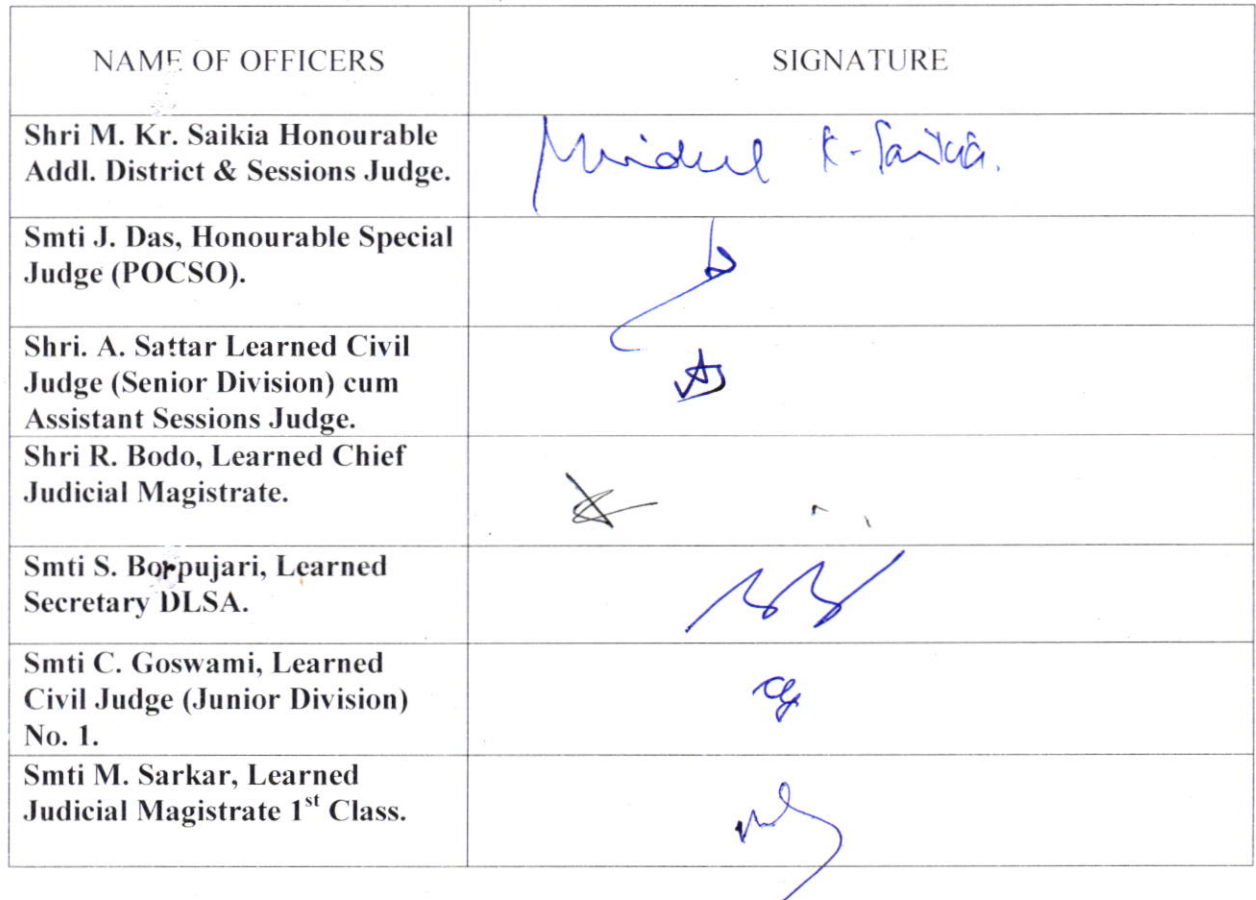 NAME OF OFFICERS SIGNATURE
Shri M. Kr. Saikia Honourable
Addl. District & Sessions Judge.
Mridul K. Saikia.
Smti J. Das, Honourable Special
Judge (POCSO).
Shri. A. Sattar Learned Civil
Judge (Senior Division) cum
Assistant Sessions Judge.
Shri R. Bodo, Learned Chief
Judicial Magistrate.
Smti S. Borpujari, Learned
Secretary DLSA.
Smti C. Goswami, Learned
Civil Judge (Junior Division)
No. 1.
Smti M. Sarkar, Learned
Judicial Magistrate 1st Class.